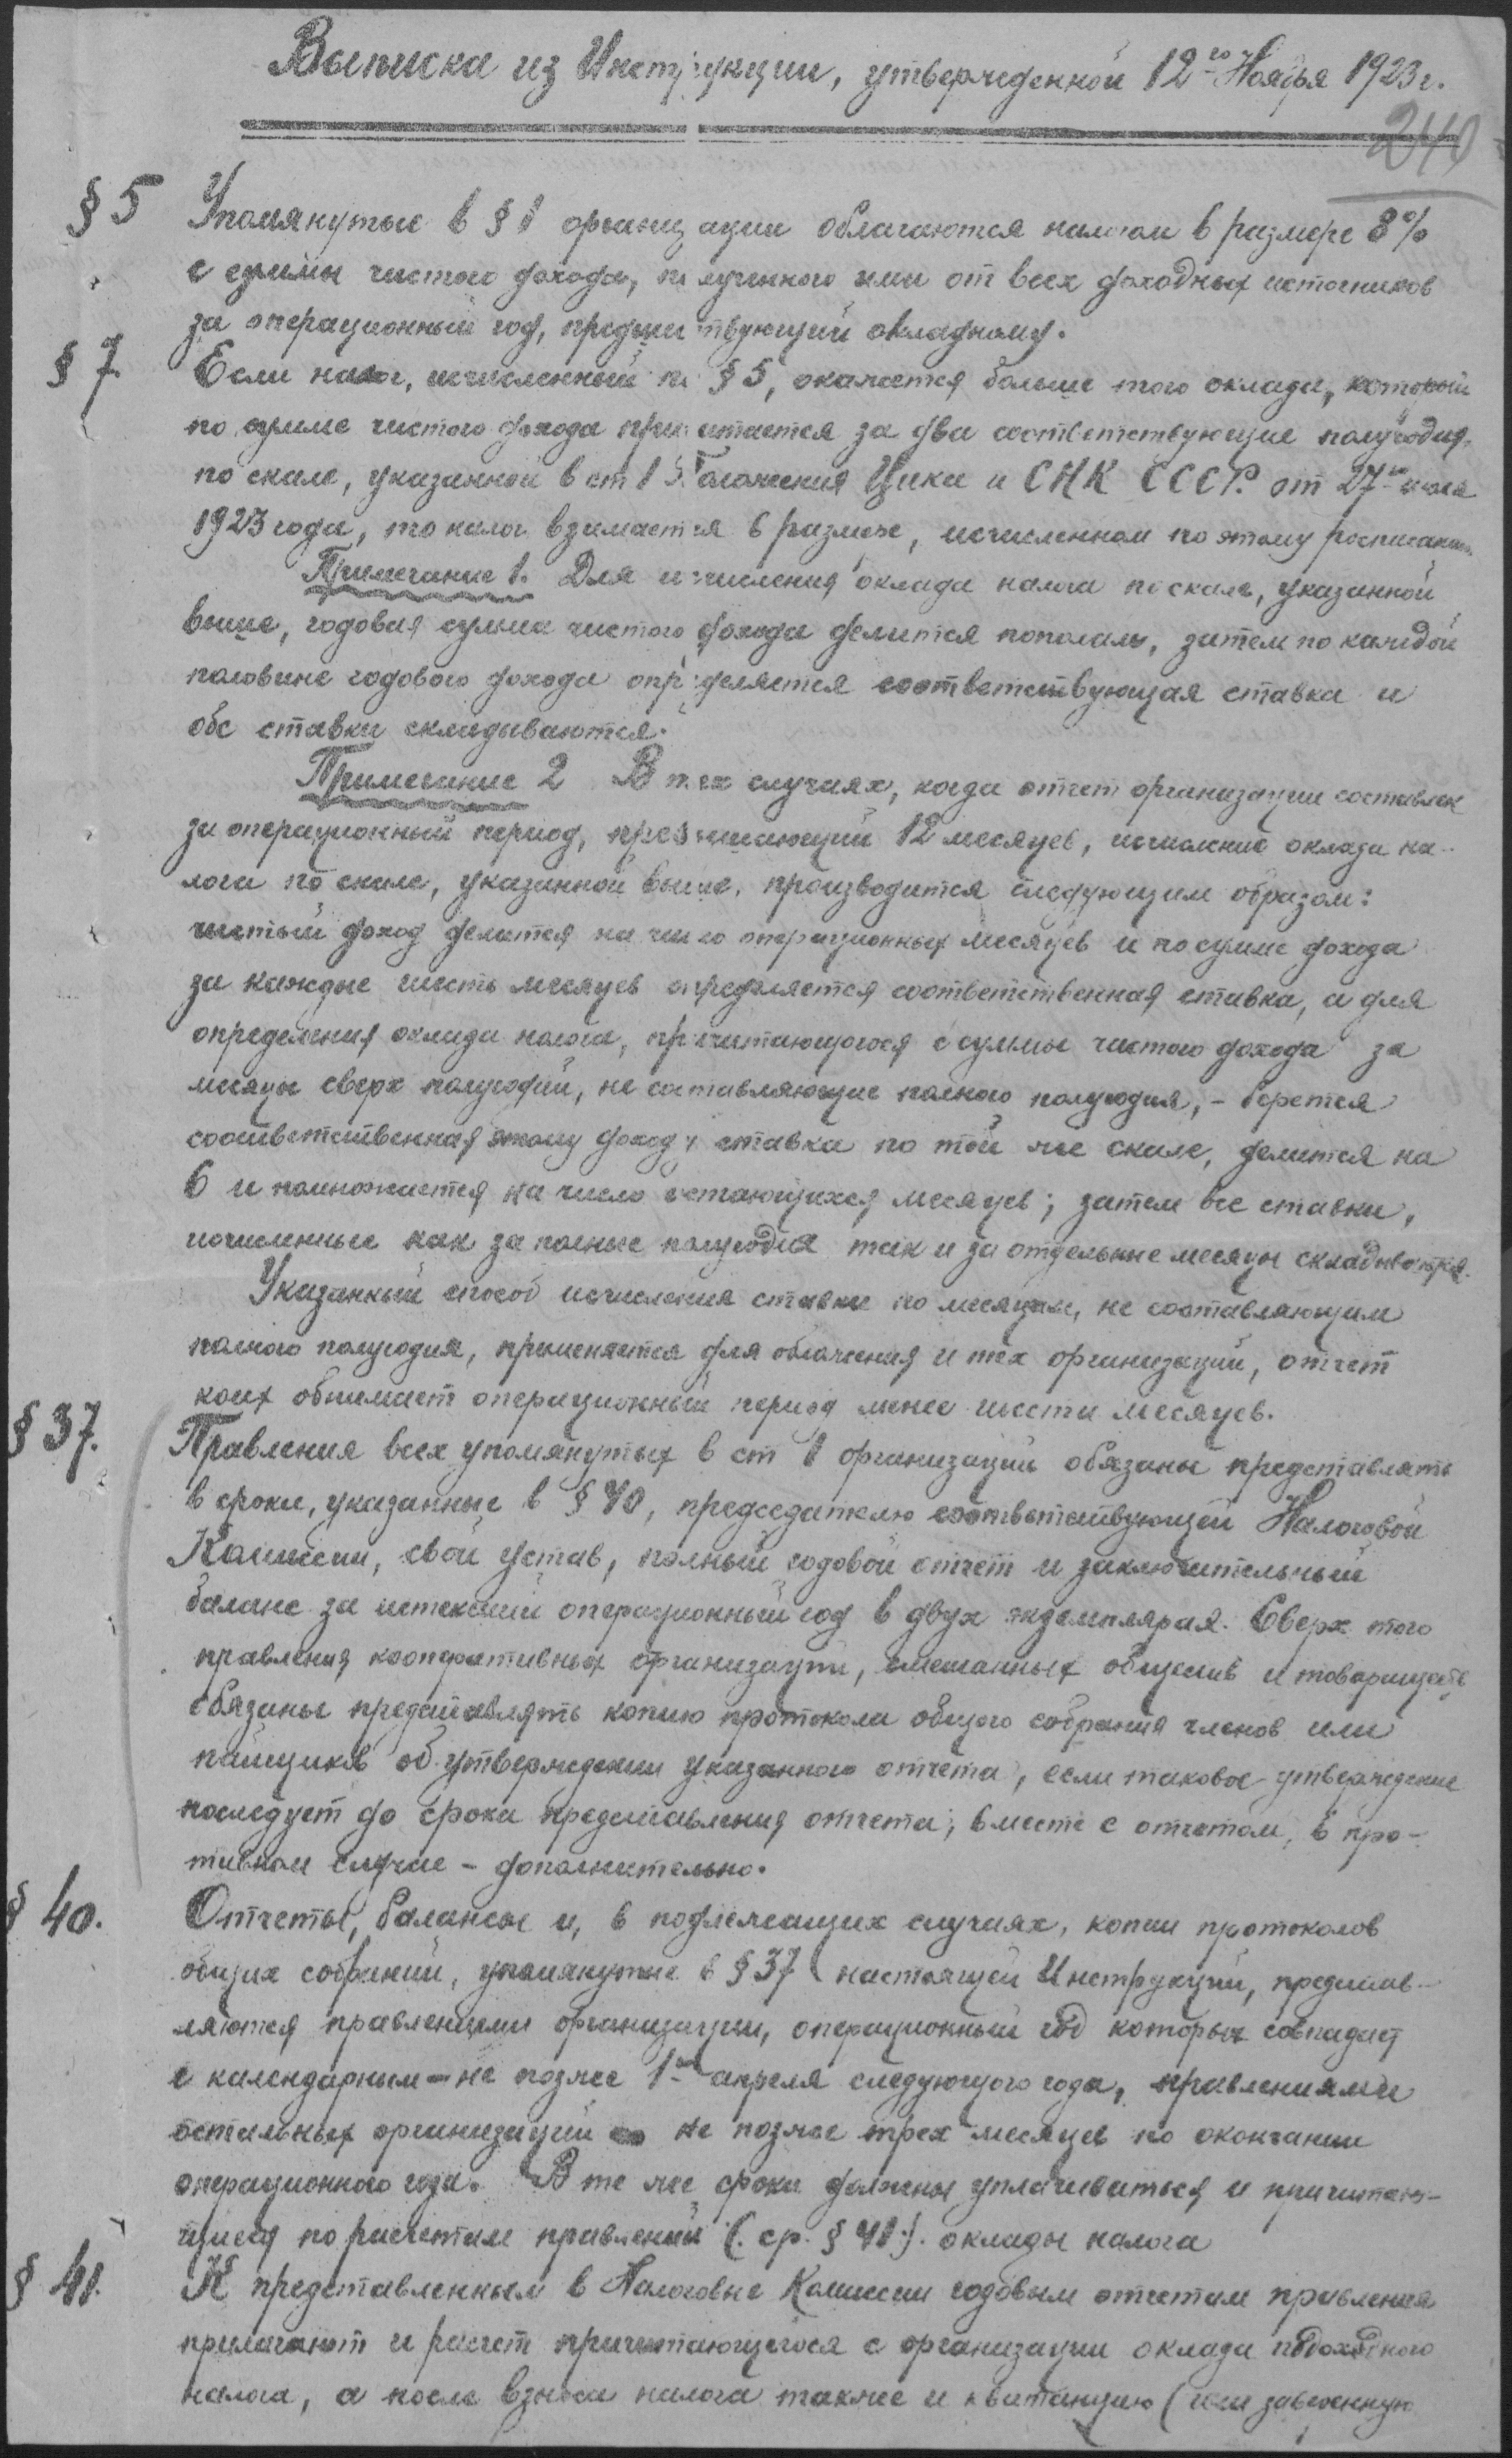 Выписка из Инструкции, утвержденной 12-го Ноября 1923 г.
240
§ 5 Упомянутые в § 1 организации облагаются налогом в размере 8%
с суммы чистого дохода, полученного ими от всех доходных источников
за операционный год, предшествующий окладному.
§ 7. Если налог, исчисленный по § 5, окажется больше того оклада, который
по сумме чистого дохода причитается за два соответствующие полугодия,
по скале, указанной в ст Положения Цика и СНК СССР. от 27-го
1923 года, то налог взимается в размере, исчисленном по этому расписанию.
Примечание 1. Для исчисления оклада налога по скале, указанной
выше, годовая сумма чистого дохода делится пополам, затем по каждой
половине годового дохода определяется соответствующая ставка и
обе ставки складываются.
Примечание 2 В тех случаях, когда отчет организации составлен
за операционный период, превышающий 12 месяцев, исчисление оклада на-
лога по скале, указанной выше, производится следующим образом:
чистый доход делится на число операционных месяцев и по сумме дохода
за каждые шесть месяцев определяется соответственная ставка, а для
определения оклада налога, причитающегося с суммы чистого дохода за
месяцы сверх полугодий, не составляющие полного полугодия, - берется
соответственная этому доходу ставка по той же скале, делится на
6 и помножается на число остающихся месяцев; затем все ставки,
исчисленные как за полные полугодия так и за отдельные месяцы складываются.
Указанный способ исчисления ставки по месяцам, не составляющим
полного полугодия, применяется для обложения и тех организаций, отчет
коих обнимает операционный период менее шести месяцев.
§ 37. Правления всех упомянутых в ст 1 организаций обязаны представлять
в сроки, указанные в § 40, председателю соответствующей Налоговой
Комиссии, свой устав, полный годовой отчет и заключительный
баланс за истекший операционный год в двух экземплярах. Сверх того
правления кооперативных организаций, смешанных обществ и товариществ
обязаны представлять копию протокола общего собрания членов или
пайщиков об утверждении указанного отчета, если таковое утверждение
последует до срока представления отчета; вместе с отчетом, в про-
тивном случае - дополнительно.
§ 40. Отчеты, балансы и, в подлежащих случаях, копии протоколов
общих собраний, упомянутые в § 37 настоящей Инструкции, представ-
ляются правлениями организации, операционный год которых совпадает
с календарным - не позже 1-го апреля следующего года, правлениями
остальных организаций не позже трех месяцев по окончании
операционного года. В те же сроки должны уплачиваться и причитаю-
щиеся по расчетам правлений (ср. § 41) оклады налога
§ 41. К представленным в Налоговые Комиссии годовым отчетам правления
прилагают и расчет причитающегося с организации оклада подоходного
налога, а после взноса налога также и квитанцию (или заверенную